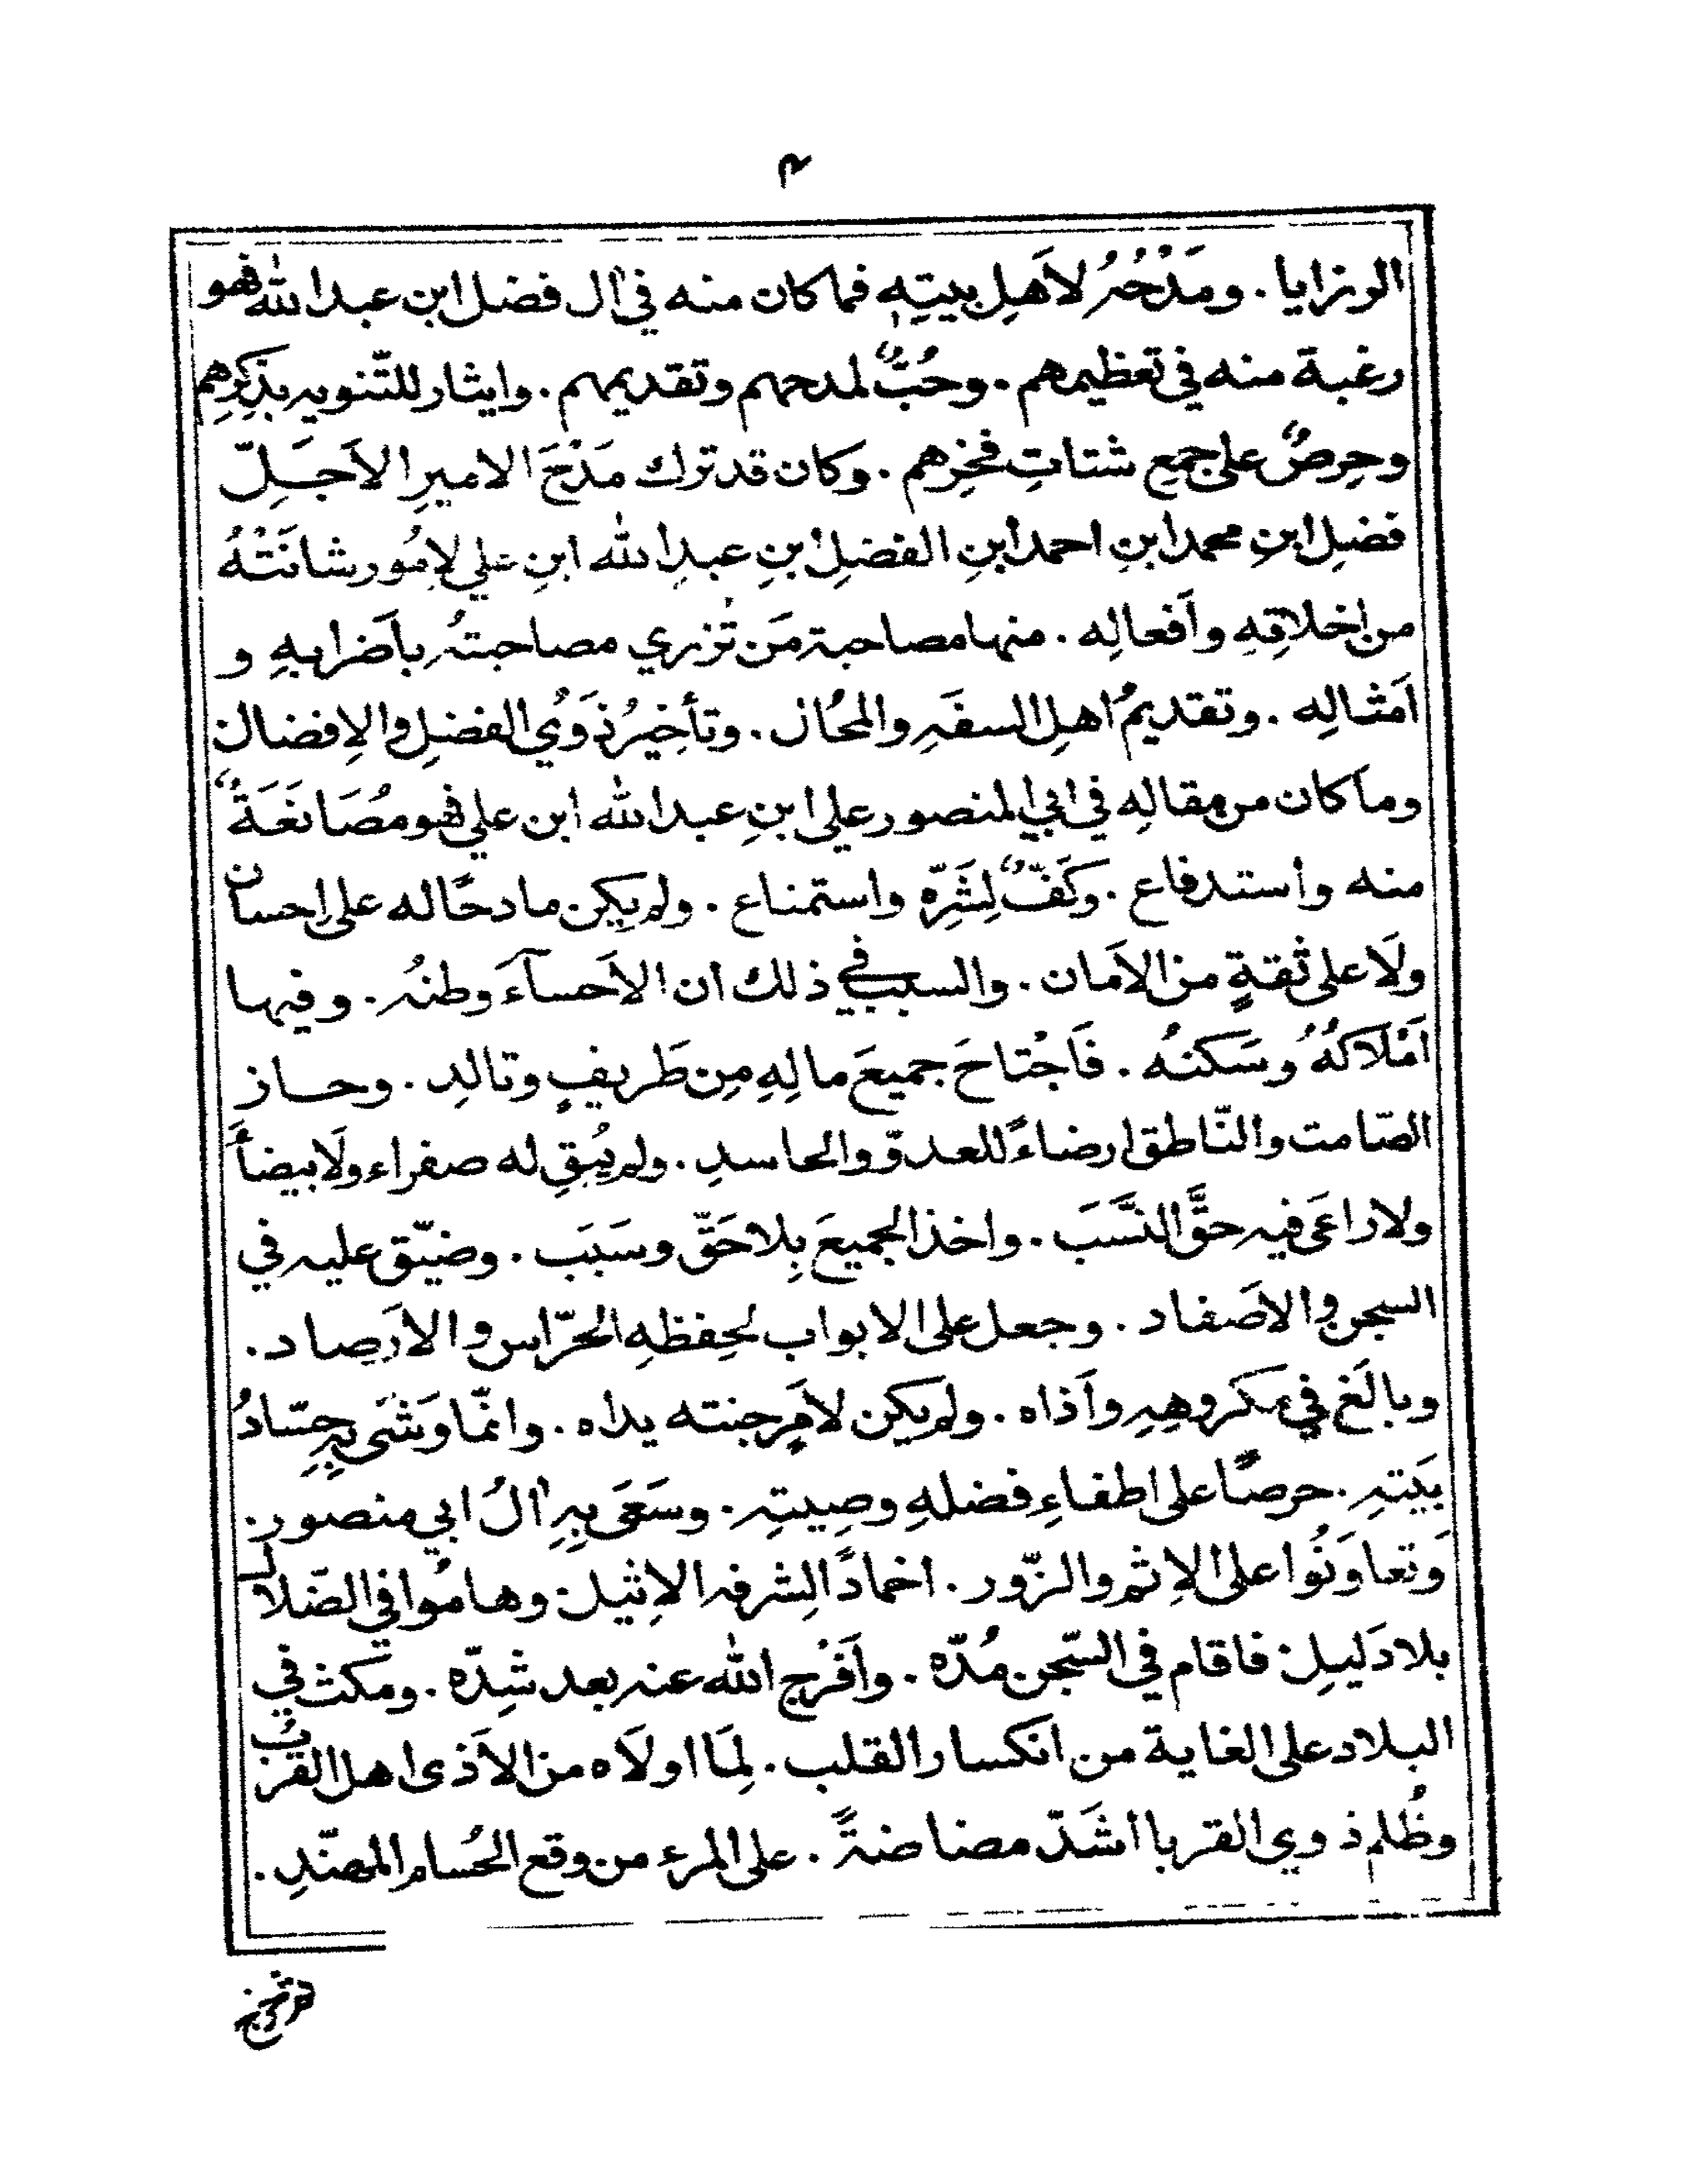 ٣
الرزايا . ومَدْحُهُ لاَهلِ بيتِهِ فما كان منه في اٰل فضل ابن عبدالله فهو
رغبة منه في تعظيمهم . وحُبٌّ لمدحهم وتقديمهم . وايثار للتّنويه بذكرِهم
وحِرصٌ على جمع شتاتِ فخرِهم . وكان قد ترك مَدْحَ الاميرِ الاَجَلّ
فضلِ ابنِ محمد ابنِ احمد ابنِ الفضلِ ابنِ عبدِالله ابنِ علي لاِمُور شانَتْهُ
من اخلاقِهِ واَفعالِه . منها مصاحبة مَن تُزري مصاحبتُه باَضرابهِ و
اَمثالِه . وتقديمُ اهلِ السفَهِ والمحُال . وتأخيرُ ذَوُي الفضلِ والاِفضال
وما كان من مقالِهِ في ابي المنصور علي ابنِ عبدالله ابن علي فهو مُصَانَعَةٌ
منه واستدفاع . وكَفٌّ لِشَرِّه واستمناع . ولم يكن مادحًا له على احسان
ولَا على ثقةٍ من الاَمان . والسبب في ذلك ان الاَحسآءَ وطنُه . وفيها
اَمْلَاكُهُ وسَكنُه . فَاَجْتاحَ جميعَ مالِهِ مِن طَريفٍ وتالدِ . وحاز
الصّامت والنّاطق ارضاءً للعدوّ والحاسدِ . ولم يُبقِ له صفراء ولَا بيضأَ
ولا راعَى فيه حقَّ النَّسَبَ . واخذ الجميعَ بِلا حَقّ وسَبَب . وضيّق عليه في
السجن والاَصَفاد . وجعل على الابواب لحِفظهِ الحرّاس والاَرصاد .
وبالَغ في مكروهِهِ واَذاه . ولم يكن لاَمرٍ جنته يداه . وانمّا وَشَى بِهِ حسّادُ
بَيَتهِ . حرصًا على اطفاءِ فضلهِ وصِيتِه . وسَعَى بِهِ اٰلُ ابي منصور .
وَتعاوَنُوا على الاِثم والزّور . اخمادًا لِشرفه الاِثيل وهامُوا في الضّلال
بلا دَليلِ فاقام في السّجن مُدّه . واَفَرْج الله عنه بعد شِدّه . ومكث في
البلاد على الغاية من انكسار القلب . لِمَا اولَاه من الاَذى اهل القرب
وظُلم ذوي القربا اشَدّ مضاضةً . على المرء من وقع الحُسام المهنّدِ .